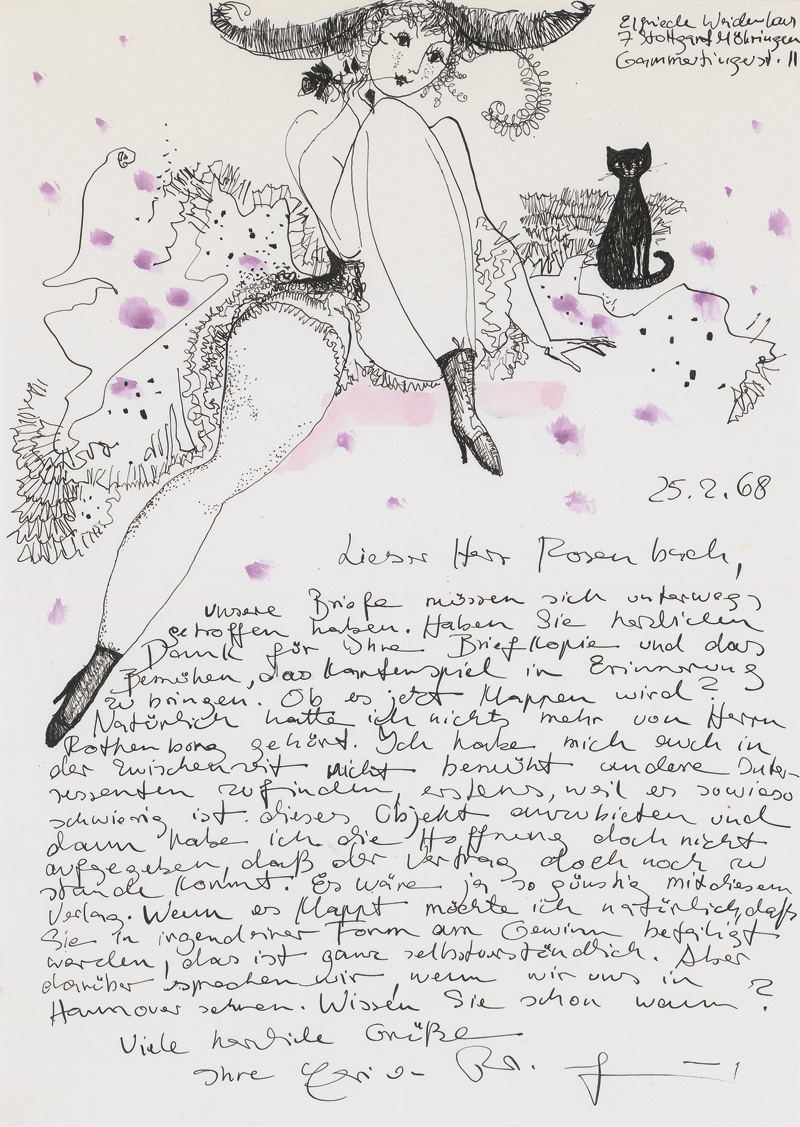 Elfriede Weidenhaus
7 Stuttgart Möhringen
Gammertingerst. 11
25.2.68
Lieber Herr Rosenbach,
unsere Briefe müssen sich unterwegs
getroffen haben. Haben Sie herzlichen
Dank für Ihre Briefkopie und das
Bemühen, das Kartenspiel in Erinnerung
zu bringen. Ob es jetzt klappen wird?
Natürlich hatte ich nichts mehr von Herrn
Rothenborg gehört. Ich habe mich auch in
der Zwischenzeit nicht bemüht andere Inter-
ressenten zufinden, erstens, weil es sowieso
schwierig ist dieses Objekt anzubieten und
dann habe ich die Hoffnung doch nicht
aufgegeben, daß der Vertrag doch noch zu
stande kommt. Es wäre ja so günstig mit diesem
Verlag. Wenn es klappt möchte ich natürlich, daß
Sie in irgendeiner Form am Gewinn beteiligt
werden, das ist ganz selbstverständlich. Aber
darüber sprechen wir, wenn wir uns in
Hannover sehen. Wissen Sie schon wann?
Viele herzliche Grüße
Ihre